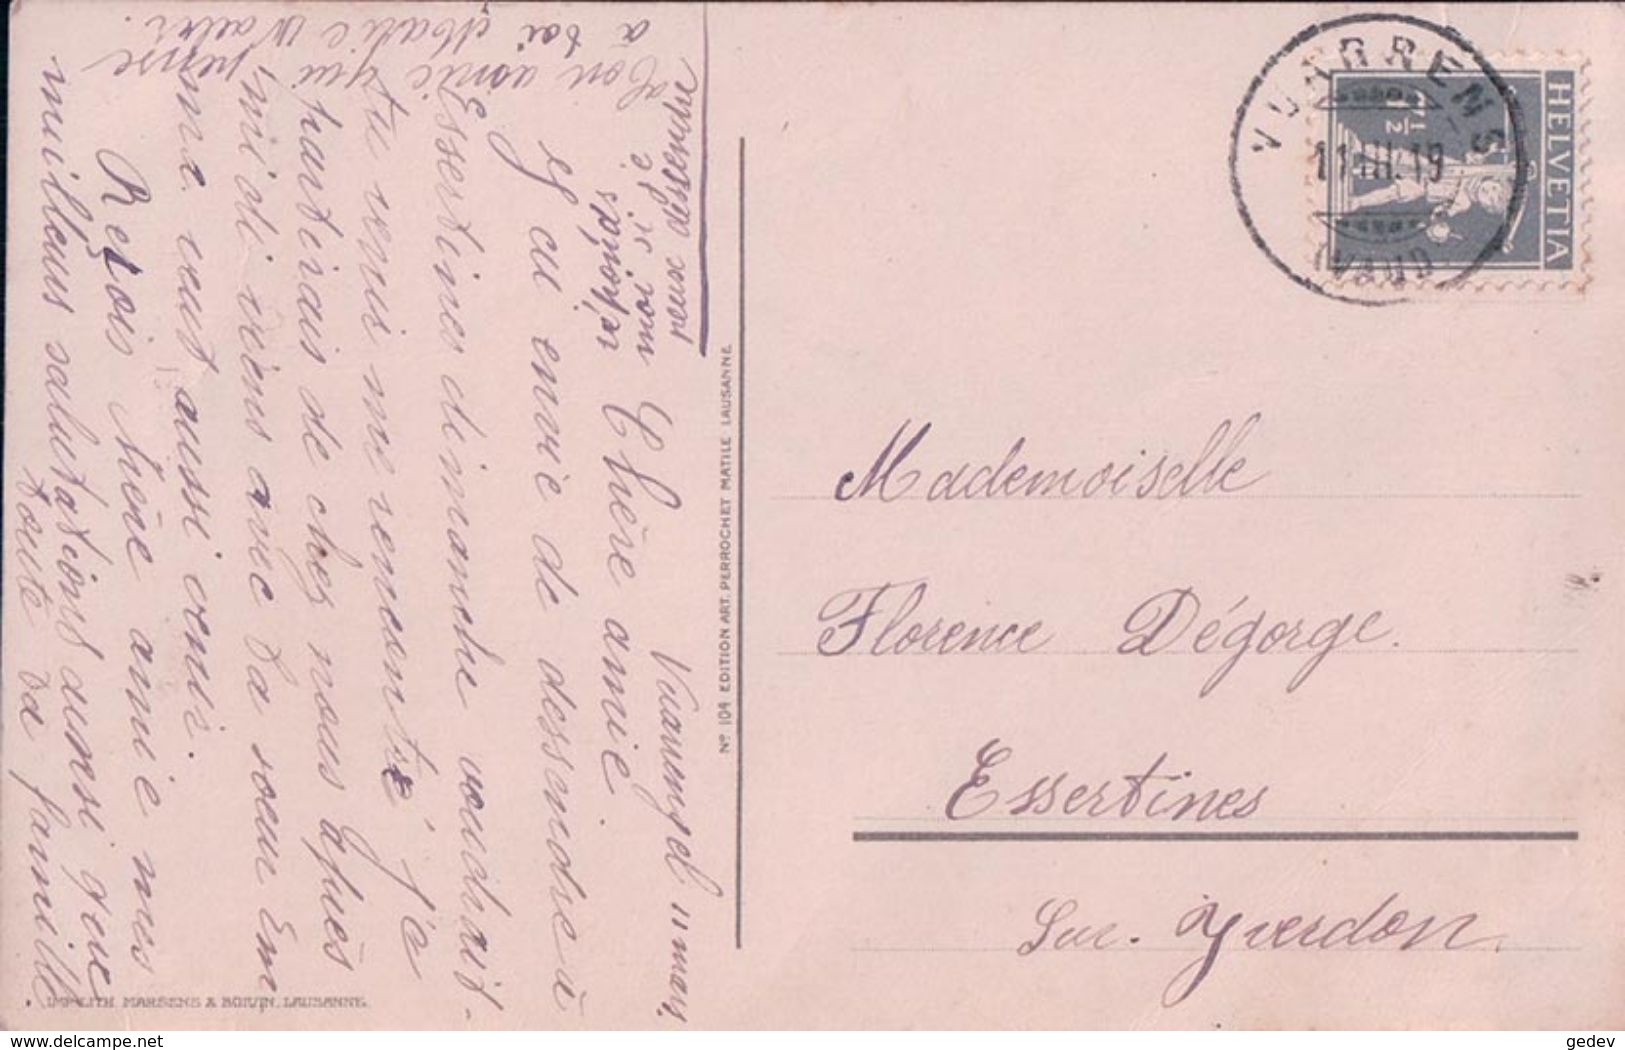 Vuarrengel 11 mars
Chère amie
Ey cu envie de dessendre à
Essertines dimanche voudrait-
tu venis me rencontré j'e
partirais de chez nous après
midi viens avec ta sœur Em
ma veut aussi venir.
Reçois Chère amie mes
meilleurs salutations ainsi que
toute ta famille
Ton amie qui pense
à toi
réponds
moi si je
peux dessendre
Nº 104 EDITION ART. PERROCHET MATILE LAUSANNE.
IMP. LITH. MARSENS & BOIVIN, LAUSANNE.
VUARRENS
11.III.19
(VAUD)
HELVETIA
7½
Mademoiselle
Florence Dégorge.
Essertines
Sur. Yverdon.
gedev
www.delcampe.net